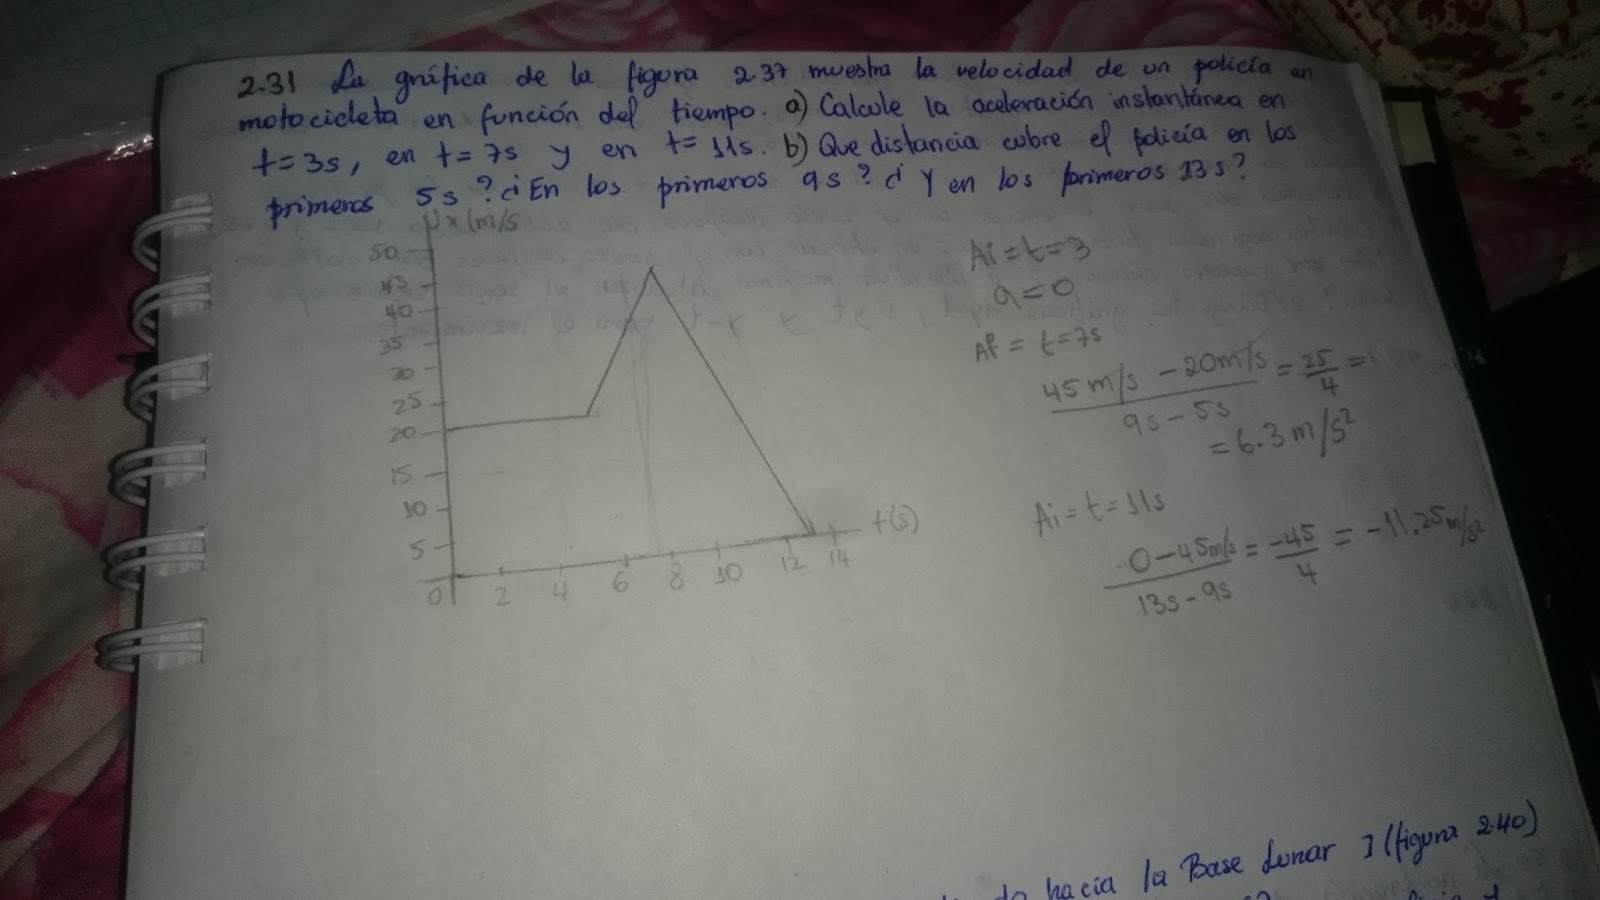 2.31 La gráfica de la figura 2.37 muestra la velocidad de un policía en
motocicleta en función del tiempo. a) Calcule la aceleración instantánea en
t=3s, en t=7s y en t=11s. b) Que distancia cubre el policía en los
primeros 5s? ¿En los primeros 9s? ¿Y en los primeros 13s?
Vx (m/s
50
45
40
35
30
25
20
15
10
5
0 2 4 6 8 10 12 14
t(s)
Ai = t=3
a=0
t=7s
45m/s - 20m/s = 25 =
9s - 5s 4
= 6.3 m/s²
Ai = t=11s
0-45m/s = -45 = -11.25m/s²
13s-9s 4
hacía la Base Lunar I (figura 2.40)